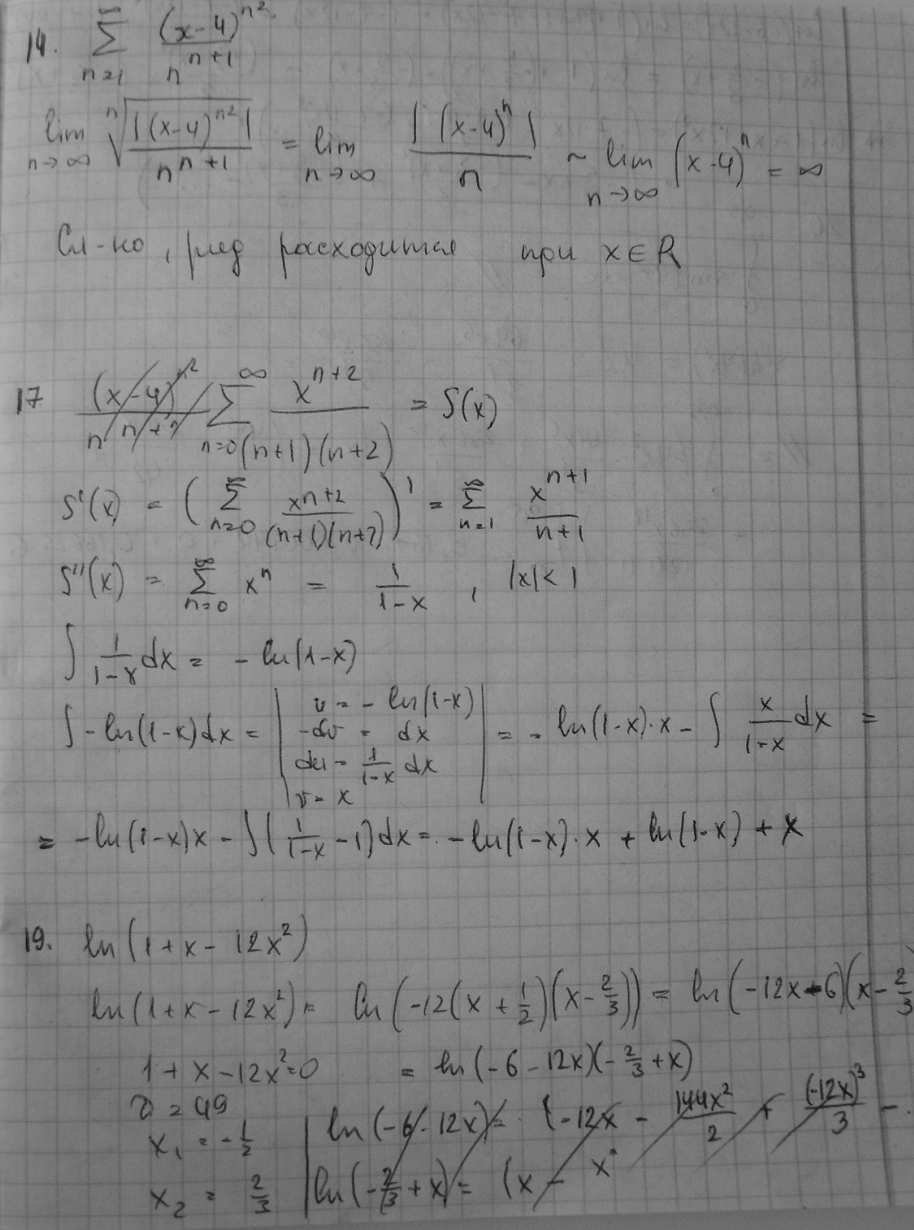 14. ∑_{n=1}^{∞} (x-4)^{n^2} / n^{n+1}
lim_{n→∞} ⁿ√(|(x-4)^{n^2}| / n^{n+1}) = lim_{n→∞} |(x-4)^n| / n ~ lim_{n→∞} (x-4)^n = ∞
Сл-но, ряд расходится при x∈R
17 ∑_{n=0}^{∞} x^{n+2} / (n+1)(n+2) = S(x)
S'(x) = (∑_{n=0}^{∞} x^{n+2} / (n+1)(n+2))' = ∑_{n=1}^{∞} x^{n+1} / n+1
S''(x) = ∑_{n=0}^{∞} x^n = 1/(1-x) , |x|<1
∫ 1/(1-x) dx = -ln(1-x)
∫-ln(1-x)dx = | u = -ln(1-x)
-dv = dx
du = 1/(1-x) dx
v = x | = -ln(1-x)·x - ∫ x/(1-x) dx =
= -ln(1-x)x - ∫(1/(1-x) -1)dx = -ln(1-x)·x + ln(1-x) + x
19. ln(1+x-12x²)
ln(1+x-12x²) = ln(-12(x+1/2)(x-2/3)) = ln(-12x-6)(x-2/3
1+x-12x²=0 = ln(-6-12x)(-2/3+x)
D = 49
x₁ = -1/2
x₂ = 2/3
ln(-6-12x) = (-12x - 144x²/2 + (-12x)³/3 -
ln(-2/3+x) = (x - x